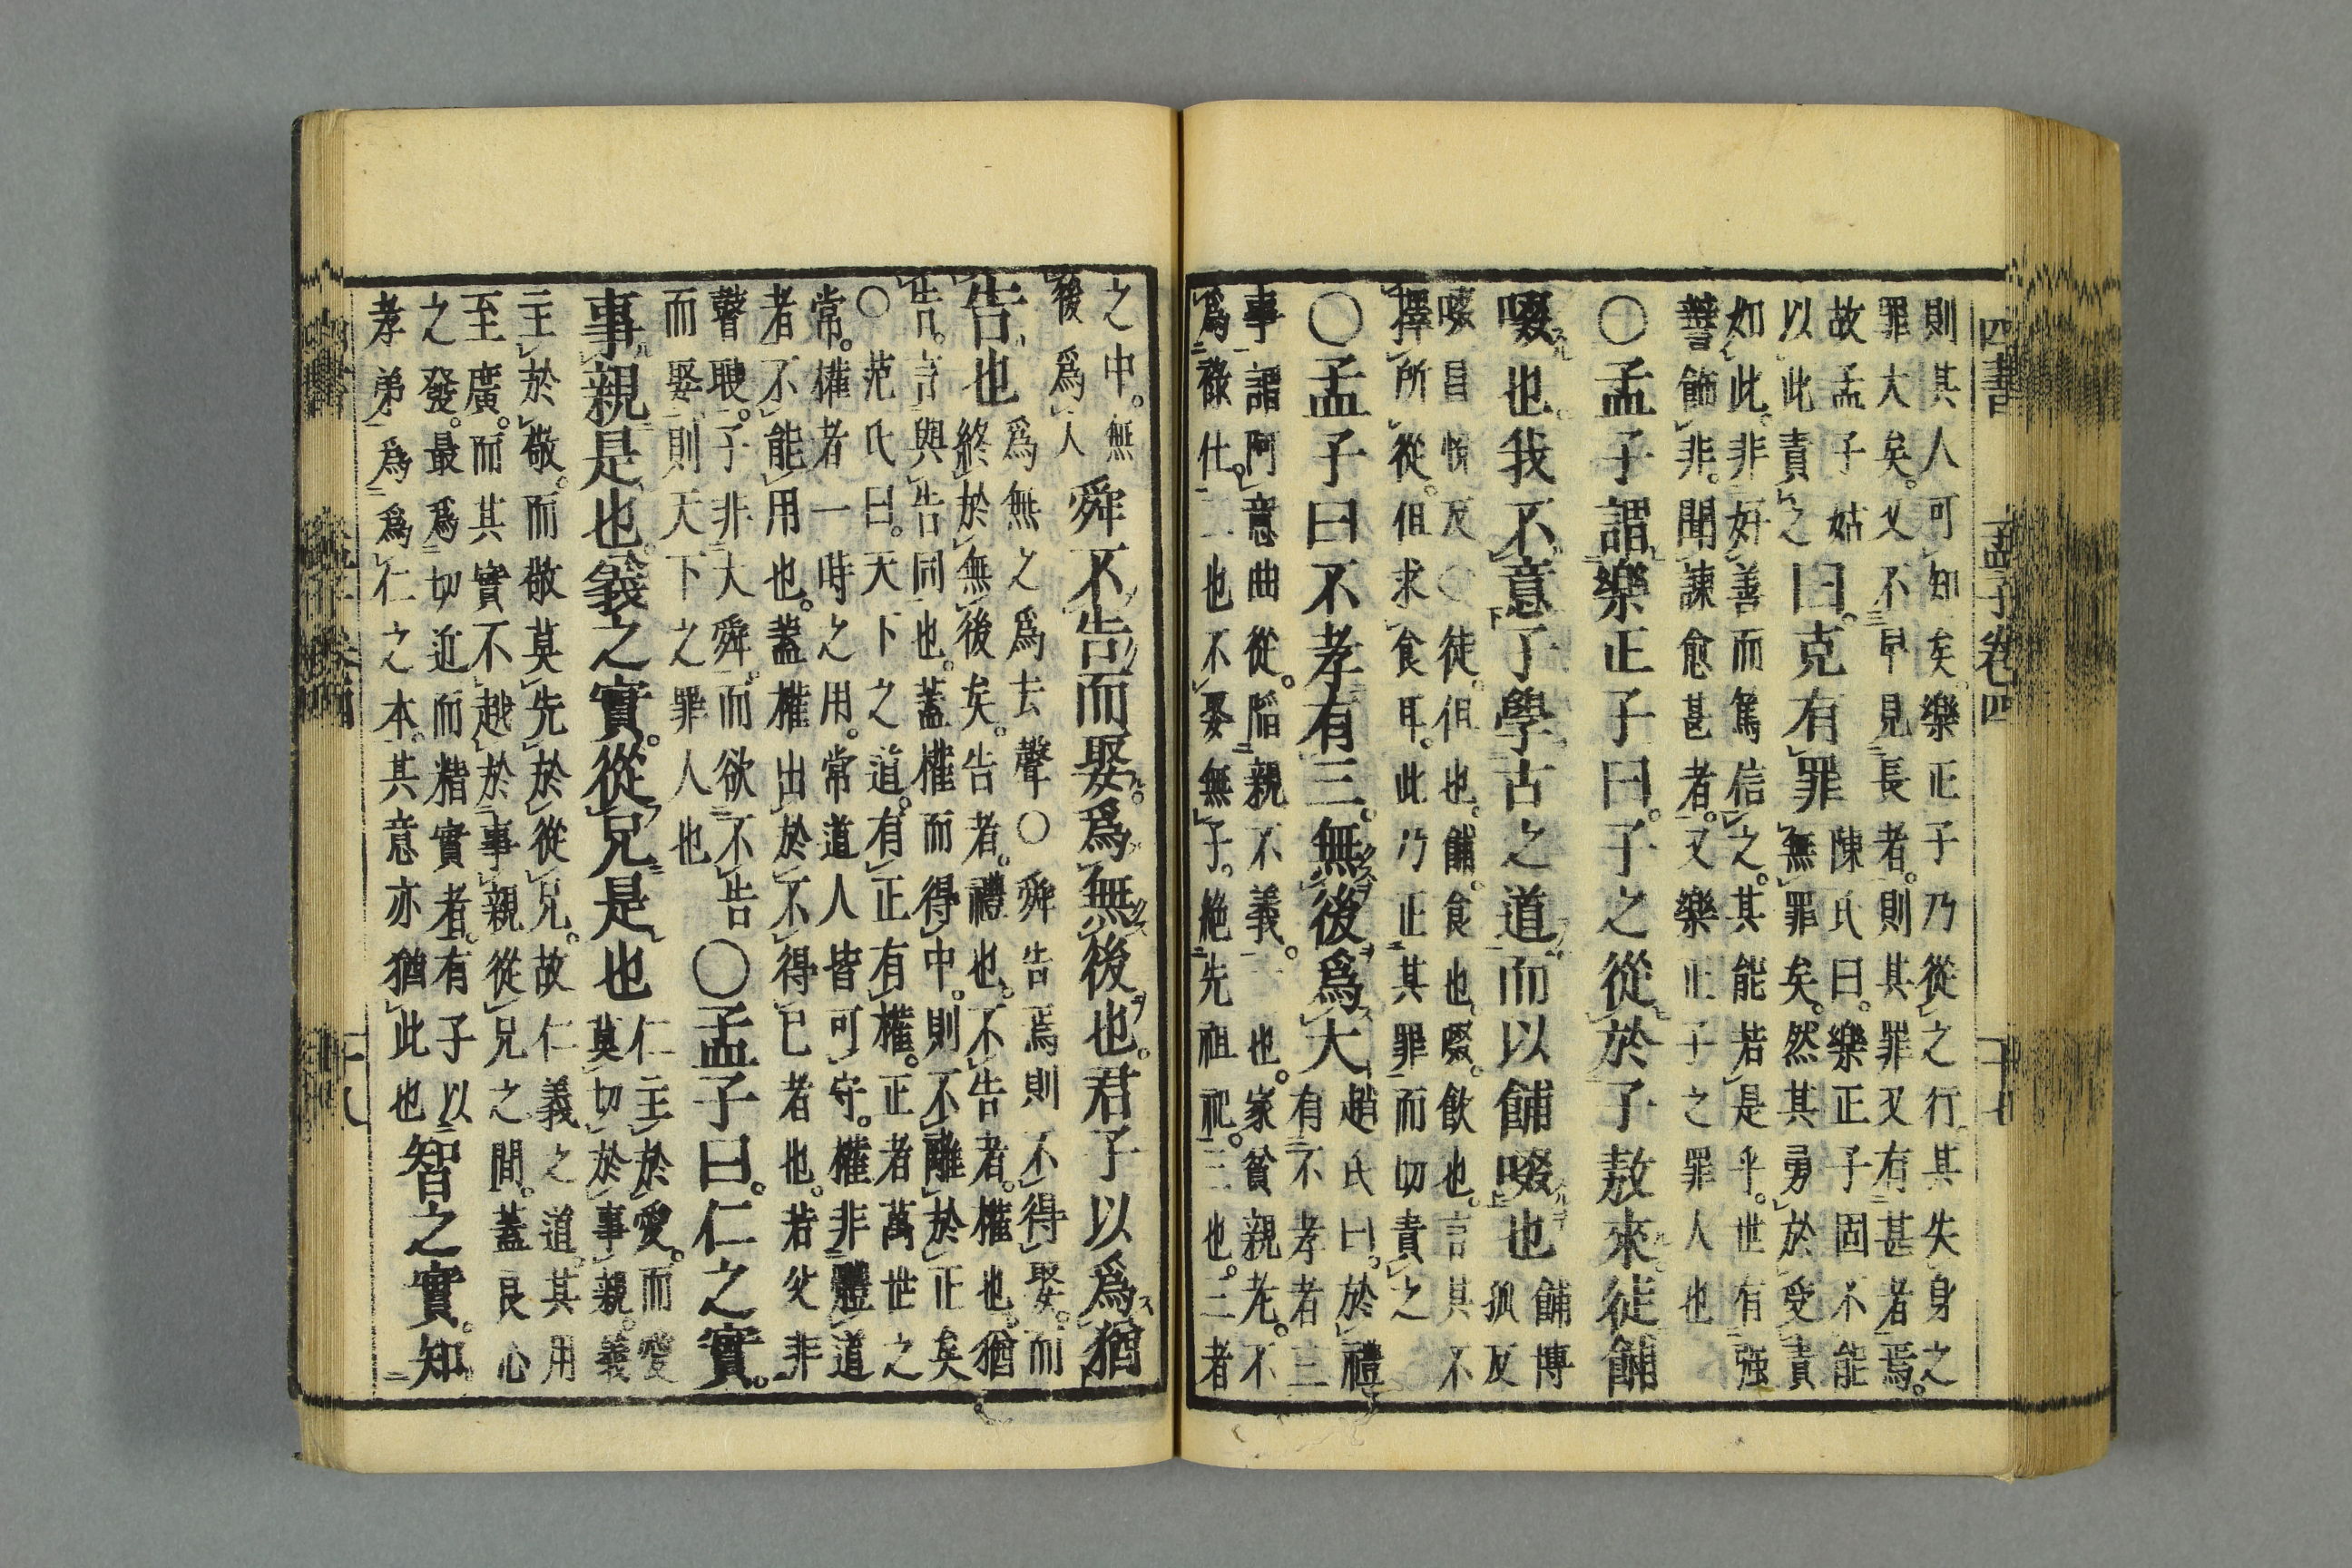 四書 孟子卷四 二十七
則其人可知矣。樂正子乃從之行。其失身之
罪大矣。又不早見長者。則其罪又有甚者焉。
故孟子姑
以此責之
曰。克有罪
陳氏曰。樂正子固不能
無罪矣。然其勇於受責
如此。非好善而篤信之。其能若是乎。世有强
辯飾非。聞諫愈甚者。又樂正子之罪人也
○孟子謂樂正子曰。子之從於子敖來。徒餔
啜也。我不意子學古之道。而以餔啜也
餔博
孤反
啜昌悅反○徒。但也。餔。食也。啜。飲也。言其不
擇所從。但求食耳。此乃正其罪而切責之
○孟子曰不孝有三。無後爲大
趙氏曰。於禮
有不孝者三
事謂阿意曲從。陷親不義。一也。家貧親老。不
爲祿仕。二也。不娶無子。絶先祖祀。三也。三者
之中。無
後爲人
舜不告而娶。爲無後也。君子以爲猶
告也
爲無之爲去聲○舜告焉則不得娶。而
終於無後矣。告者。禮也。不告者。權也。猶
告。言與告同也。蓋權而得中。則不離於正矣
○范氏曰。天下之道。有正有權。正者萬世之
常。權者一時之用。常道人皆可守。權非體道
者不能用也。蓋權出於不得已者也。若父非
瞽瞍。子非大舜。而欲不告
而娶。則天下之罪人也
○孟子曰。仁之實。
事親是也。義之實。從兄是也
仁主於愛。而愛
莫切於事親。義
主於敬。而敬莫先於從兄。故仁義之道。其用
至廣。而其實不越於事親從兄之間。蓋良心
之發。最爲切近而精實者。有子以
孝弟爲爲仁之本。其意亦猶此也
智之實。知